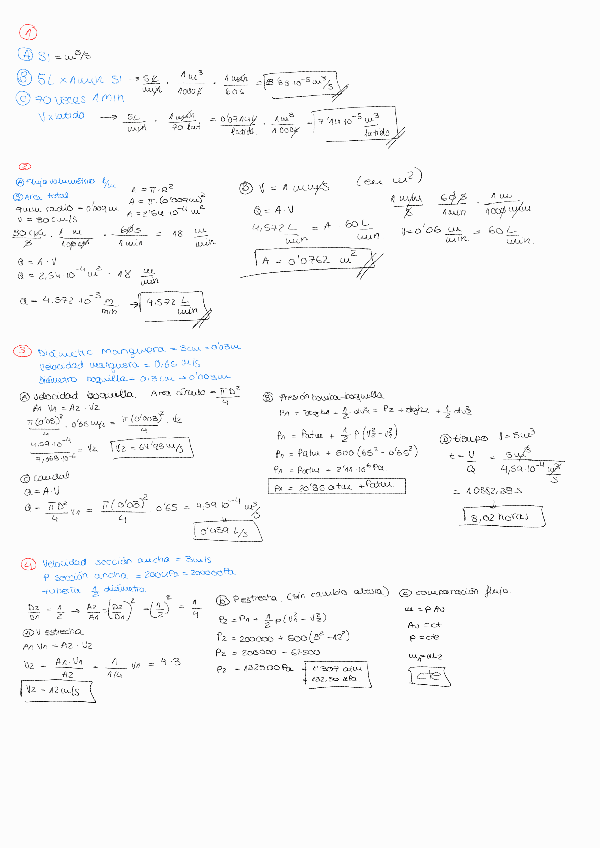 1
A SI = m³/s
B 5L x 1 min SI = 5L/min · 1m³/1000L · 1min/60s = 8'33·10⁻⁵ m³/s
C 70 veces 1 min
V x latido → 5L/min · 1min/70 lat = 0'071L/latido · 1m³/1000L = 7'14·10⁻⁵ m³/latido
2
A Flujo volumétrico L/
Area total
radio = 0'009m
V = 30 cm/s
A = π·R²
A = π·(0'009m)²
A = 2'54·10⁻⁴ m²
30 cm/s · 1m/100cm · 60s/1min = 18 m/min
Q = A·V
Q = 2,54·10⁻⁴ m² · 18 m/min
Q = 4.572·10⁻³ m/min → 4.572 L/min
B V = 1 mm/s (en m²)
Q = A·V
4,572 L/min = A 60 L/min
A = 0'0762 m²
1mm/s 60s/1min · 1m/1000mm
V = 0'06 m/min = 60 L/min
3
Diámetro manguera = 3cm = 0'03m
Velocidad manguera = 0,65 m/s
Diámetro boquilla = 0.3cm → 0'003m
A Velocidad boquilla. Area círculo = πD²/4
A1·V1 = A2·V2
π(0'03)²/4 · 0'65 m/s = π(0'003)²/4 · V2
4,59·10⁻⁴/7,068·10⁻⁶ = V2
V2 = 64'93 m/s
C Caudal
Q = A·V
Q = πD²/4 · V1 = π(0'03)²/4 · 0'65 = 4,59·10⁻⁴ m³/s
0'459 L/s
B Presión bomba-boquilla
P1 + + 1/2 = P2 + + 1/2
P1 = Patm + 1/2 ρ(V2² - V1²)
P1 = Patm + 500(65² - 0'65²)
P1 = Patm + 2'11·10⁶ Pa
P1 = 20'80 atm + Patm
D tiempo V = 5m³
t = V/Q = 5m³/4,59·10⁻⁴ m³/s
= 10882.28 s
3,02 horas
4
Velocidad sección ancha = 3m/s
P sección ancha = 200kPa = 200000Pa
tubería 1/2 diámetro
D2/D1 = 1/2 → A2/A1 = (D2/D1)² = (1/2)² = 1/4
A V estrecha
A1·V1 = A2·V2
V2 = A1·V1/A2 = 1/1/4 V1 = 4·3
V2 = 12 m/s
B P estrecha (sin cambio altura)
P2 = P1 + 1/2 ρ(V1² - V2²)
P2 = 200000 + 500(3² - 12²)
P2 = 200000 - 67500
P2 = 132500 Pa = 1'307 atm
132,50 kPa
C comparación flujo
m = ρAV
AV = ct
ρ = cte
m1 = m2
cte